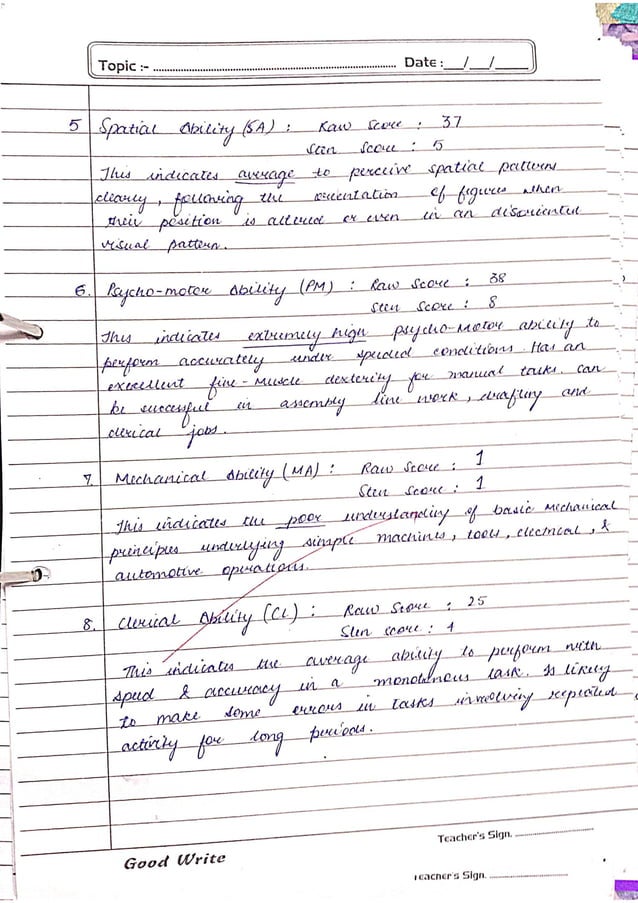 Topic :- ........................ Date :__/__/____
5 Spatial Ability (SA) : Raw Score : 37
Sten Score : 5
This indicates average to perceive spatial patterns
clearly, following the orientation of figures when
their position is altered or even in an disoriented
visual pattern.
6. Psycho-motor Ability (PM) : Raw Score : 38
Sten Score : 8
This indicates extremely high psycho-motor ability to
perform accurately under speeded conditions. Has an
excellent fine-muscle dexterity for manual tasks. Can
be successful in assembly line work, drafting and
clerical jobs.
7. Mechanical Ability (MA) : Raw Score : 1
Sten Score : 1
This indicates the poor understanding of basic mechanical
principles underlying simple machines, tools, electrical, &
automotive operations.
8. Clerical Ability (CL) : Raw Score : 25
Sten score : 4
This indicates the average ability to perform with
speed & accuracy in a monotonous task. Is likely
to make some errors in tasks involving repeated
activity for long periods.
Teacher's Sign. ........................
Good Write
Teacher's Sign. ........................